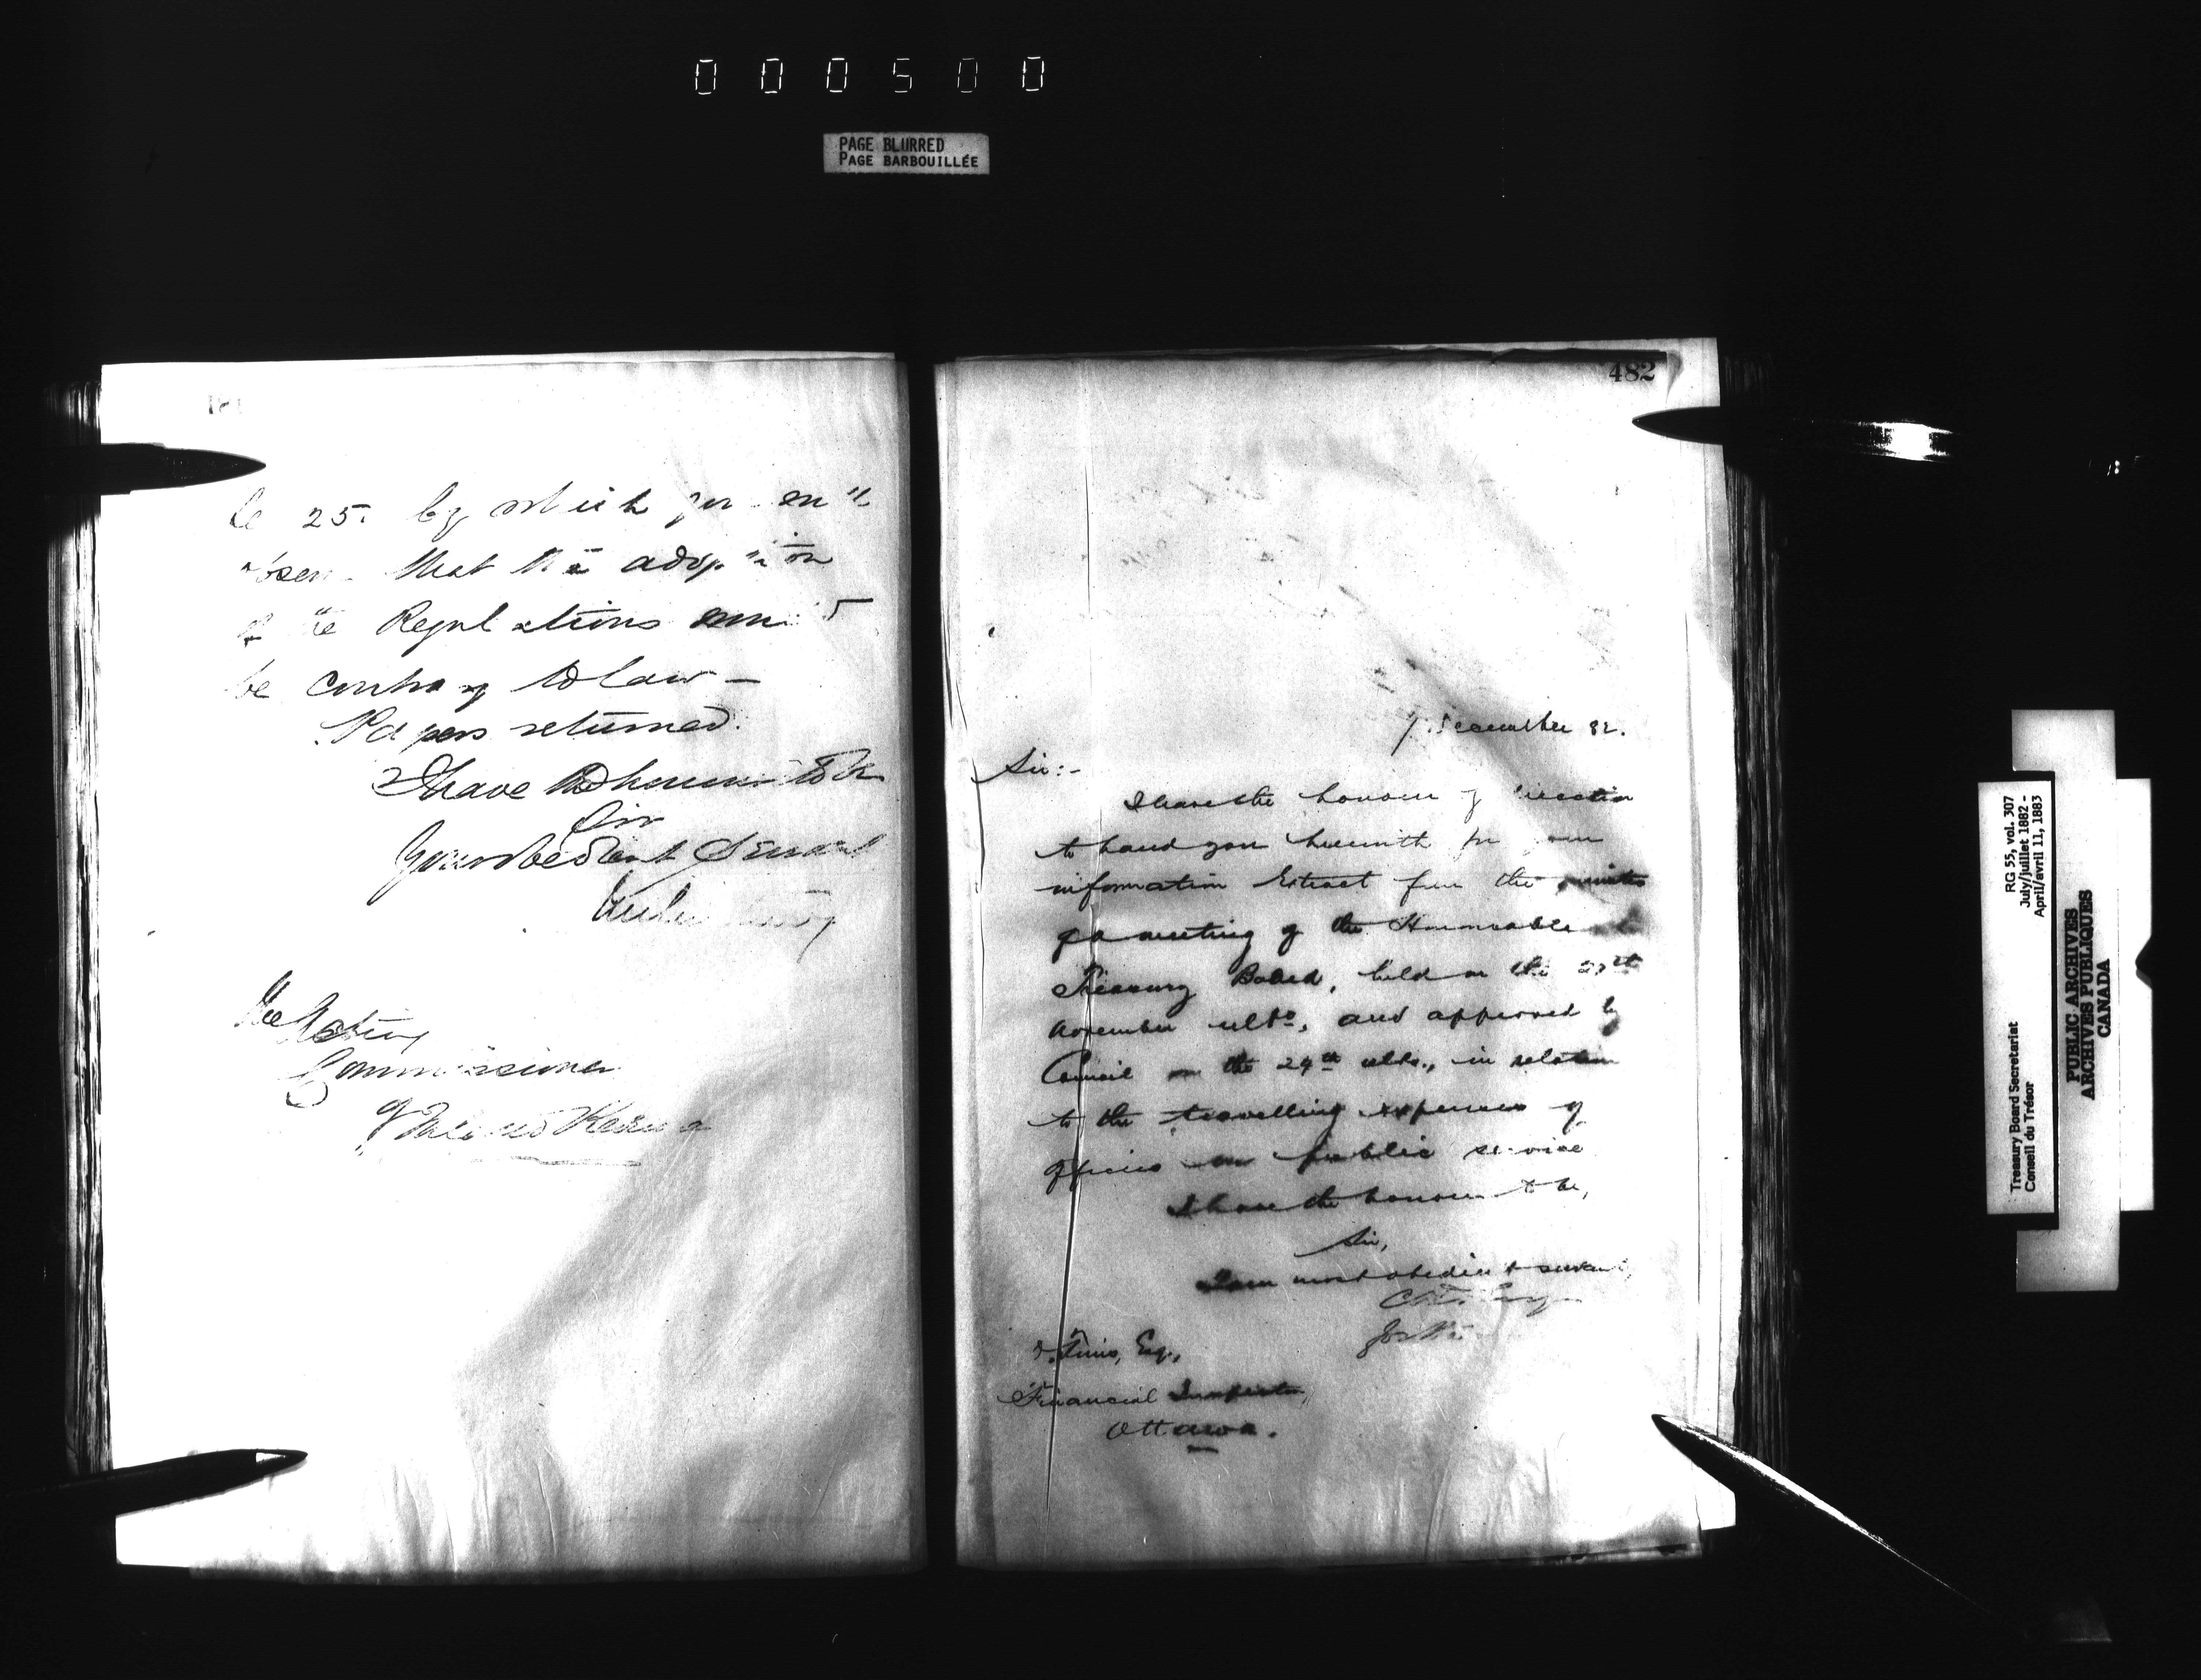 000500
PAGE BLURRED
PAGE BARBOUILLÉE
25. by which you
that the adoption
of the Regulations
be contrary to law —
Papers returned.
I have the honour to be
Sir
Your obedient Servant
The Acting
Commissioner
of Inland Revenue
482
7. December 82.
Sir:-
I have the honour by direction
to hand you herewith for your
information Extract from the minutes
of a meeting of the Honourable the
Treasury Board, held on the
November ulto, and approved by
Council on the 29th ulto., in relation
to the travelling expenses of
Officers on public service
I have the honour to be,
Sir,
Your most obedient servant,
Tims, Esq.,
Financial Inspector,
Ottawa.
RG 55, vol. 307
July/juillet 1882 -
April/avril 11, 1883
Treasury Board Secretariat
Conseil du Trésor
PUBLIC ARCHIVES
ARCHIVES PUBLIQUES
CANADA